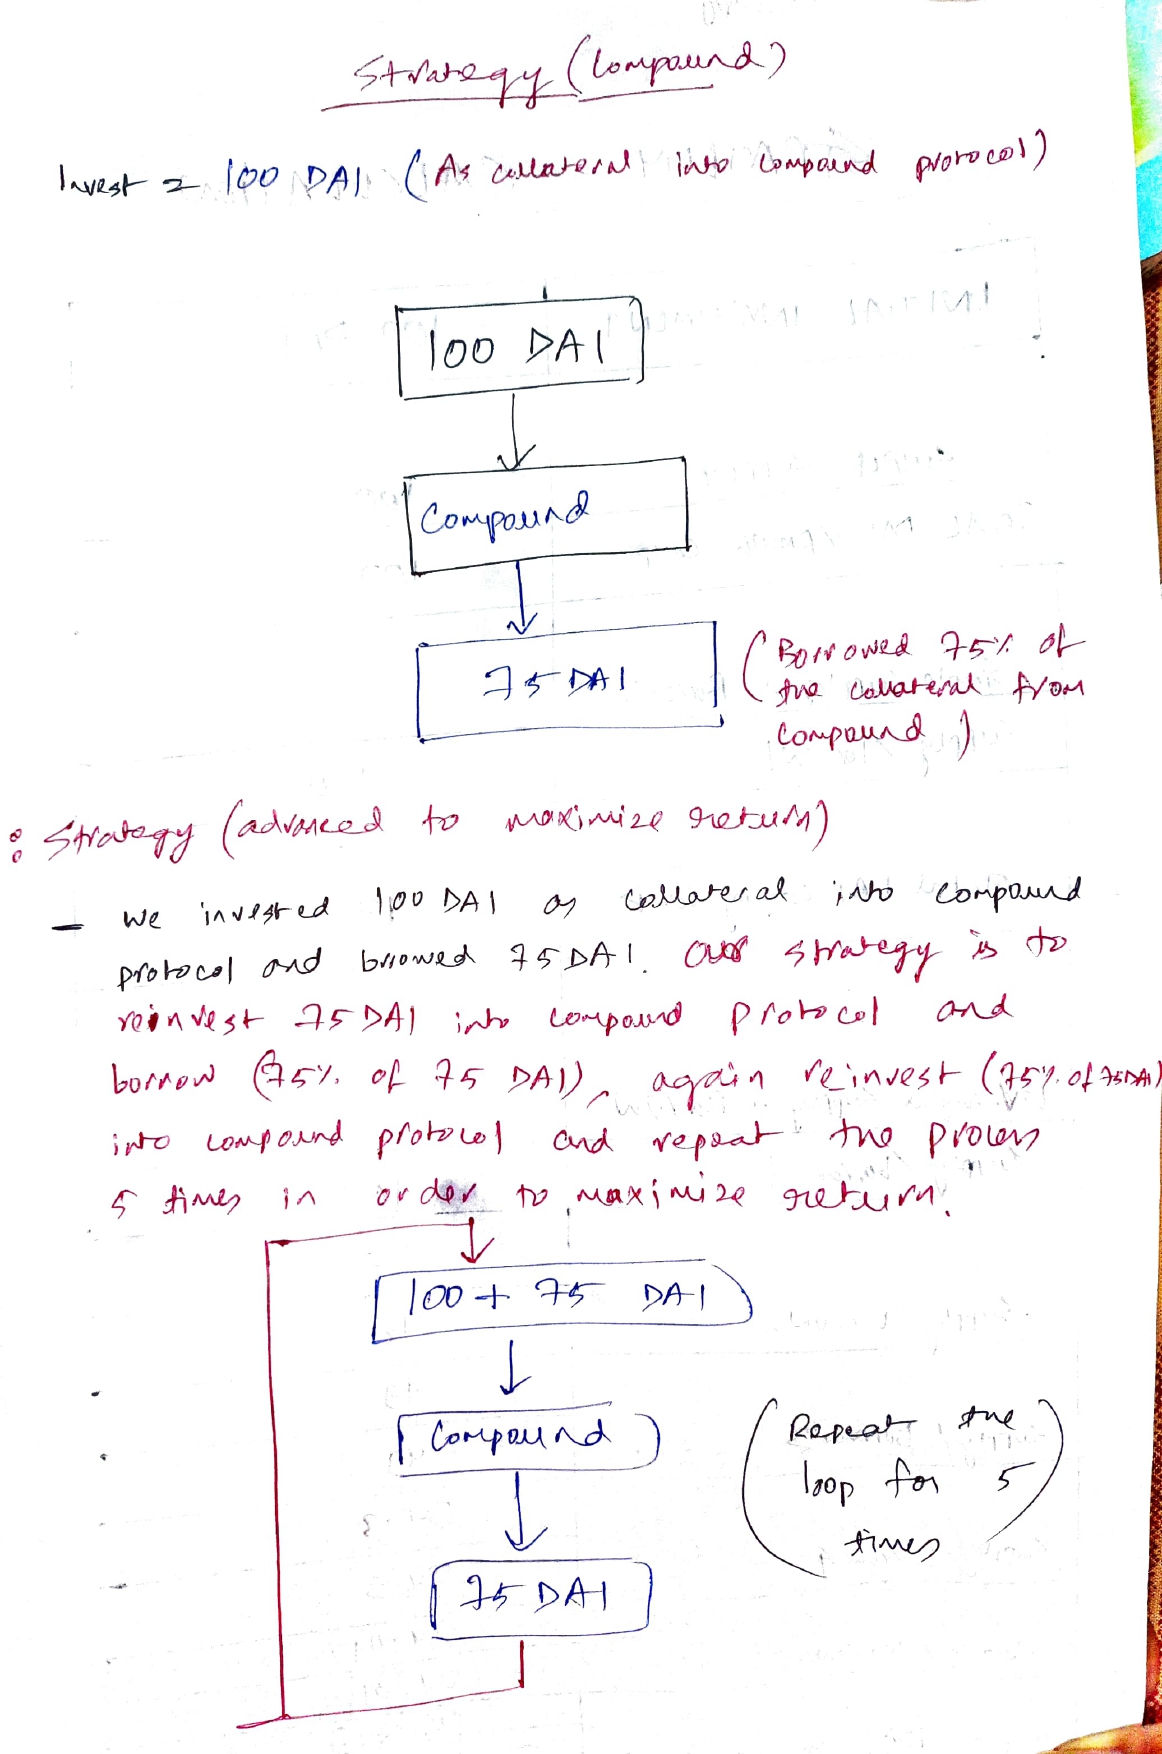 Strategy (Compound)
Invest = 100 DAI (As collateral into compound protocol)
100 DAI
Compound
75 DAI
(Borrowed 75% of
the collateral from
Compound)
: Strategy (advanced to maximize return)
- We invested 100 DAI as collateral into compound
protocol and brrowed 75 DAI. Our strategy is to
reinvest 75 DAI into compound protocol and
borrow (75% of 75 DAI), again reinvest (75% of 75DAI)
into compound protocol and repeat the process
5 times in order to maximize return.
100 + 75 DAI
Compound
75 DAI
(Repeat the
loop for 5
times)